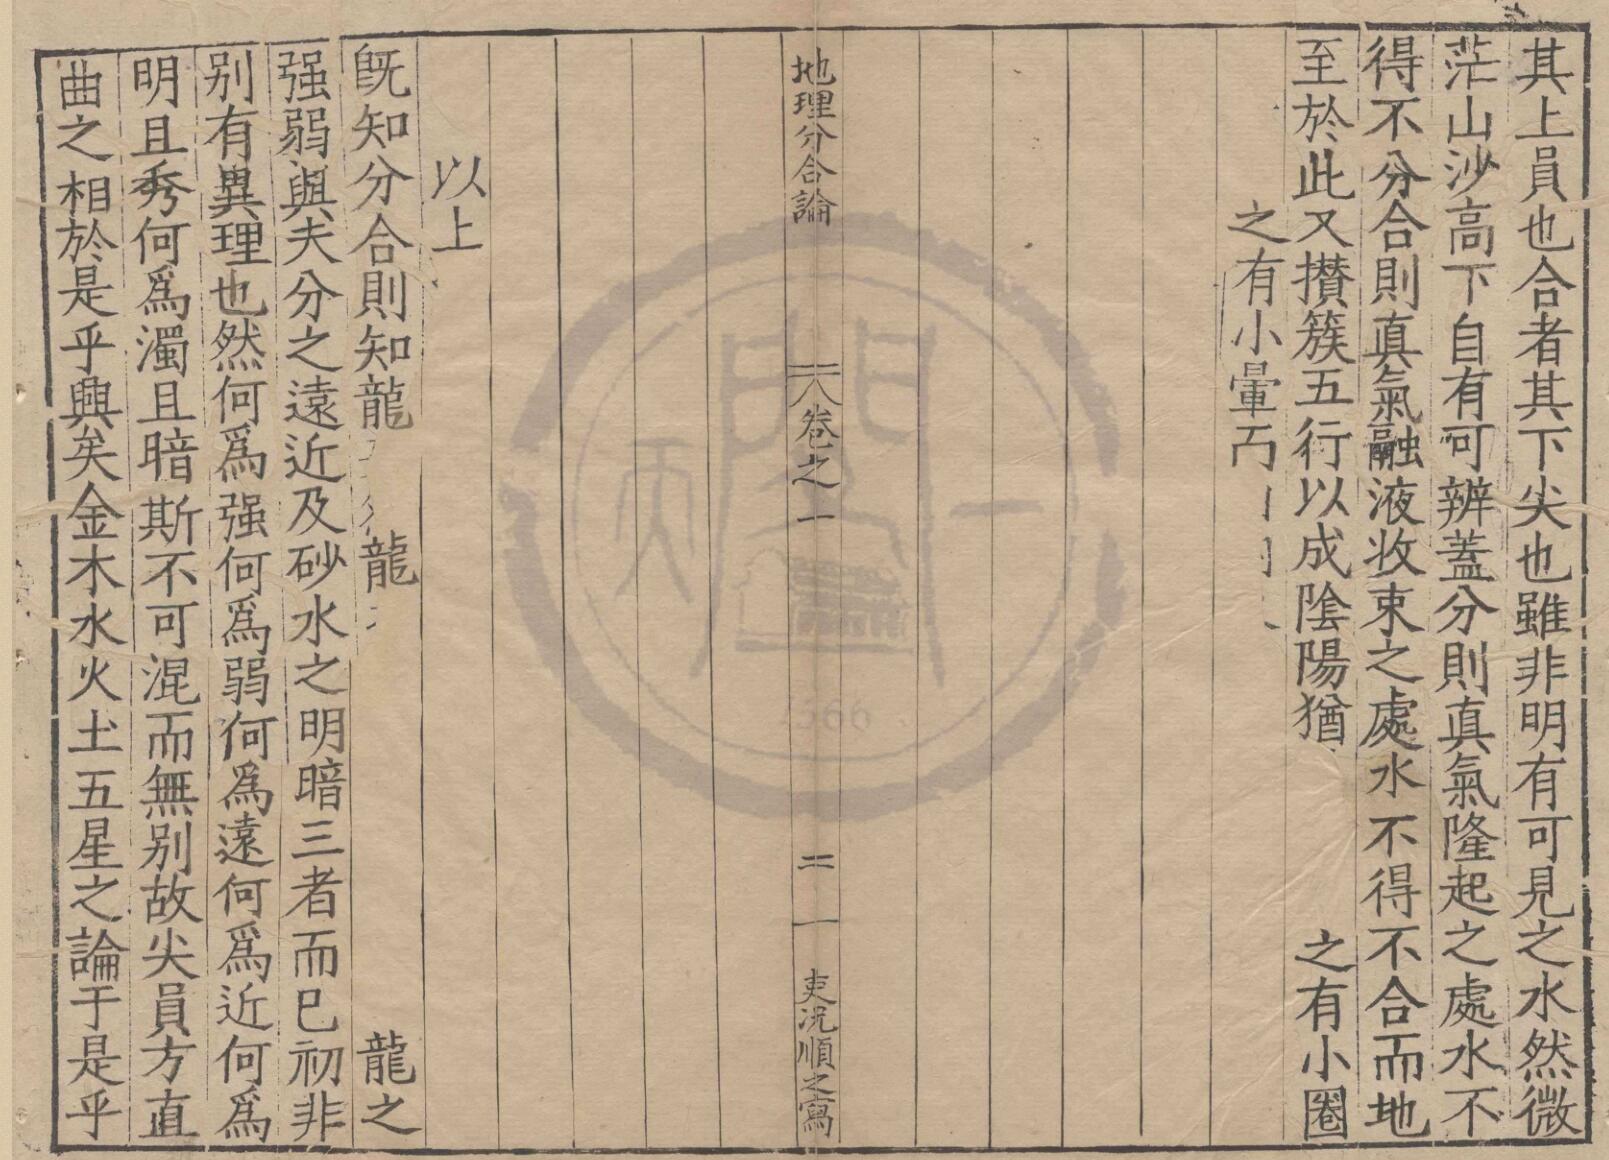 其上員也合者其下尖也雖非明有可見之水然微
茫山沙高下自有可辨蓋分則真氣隆起之處水不
得不分合則真氣融液收束之處水不得不合而地
至於此又攢簇五行以成陰陽猶之有小圈
之有小暈
地理分合論 卷之一 二 一 吏況順之寫
以上
旣知分合則知龍龍龍之
强弱與夫分之遠近及砂水之明暗三者而已初非
别有異理也然何爲强何爲弱何爲遠何爲近何爲
明且秀何爲濁且暗斯不可混而無别故尖員方直
曲之相於是乎興矣金木水火土五星之論于是乎